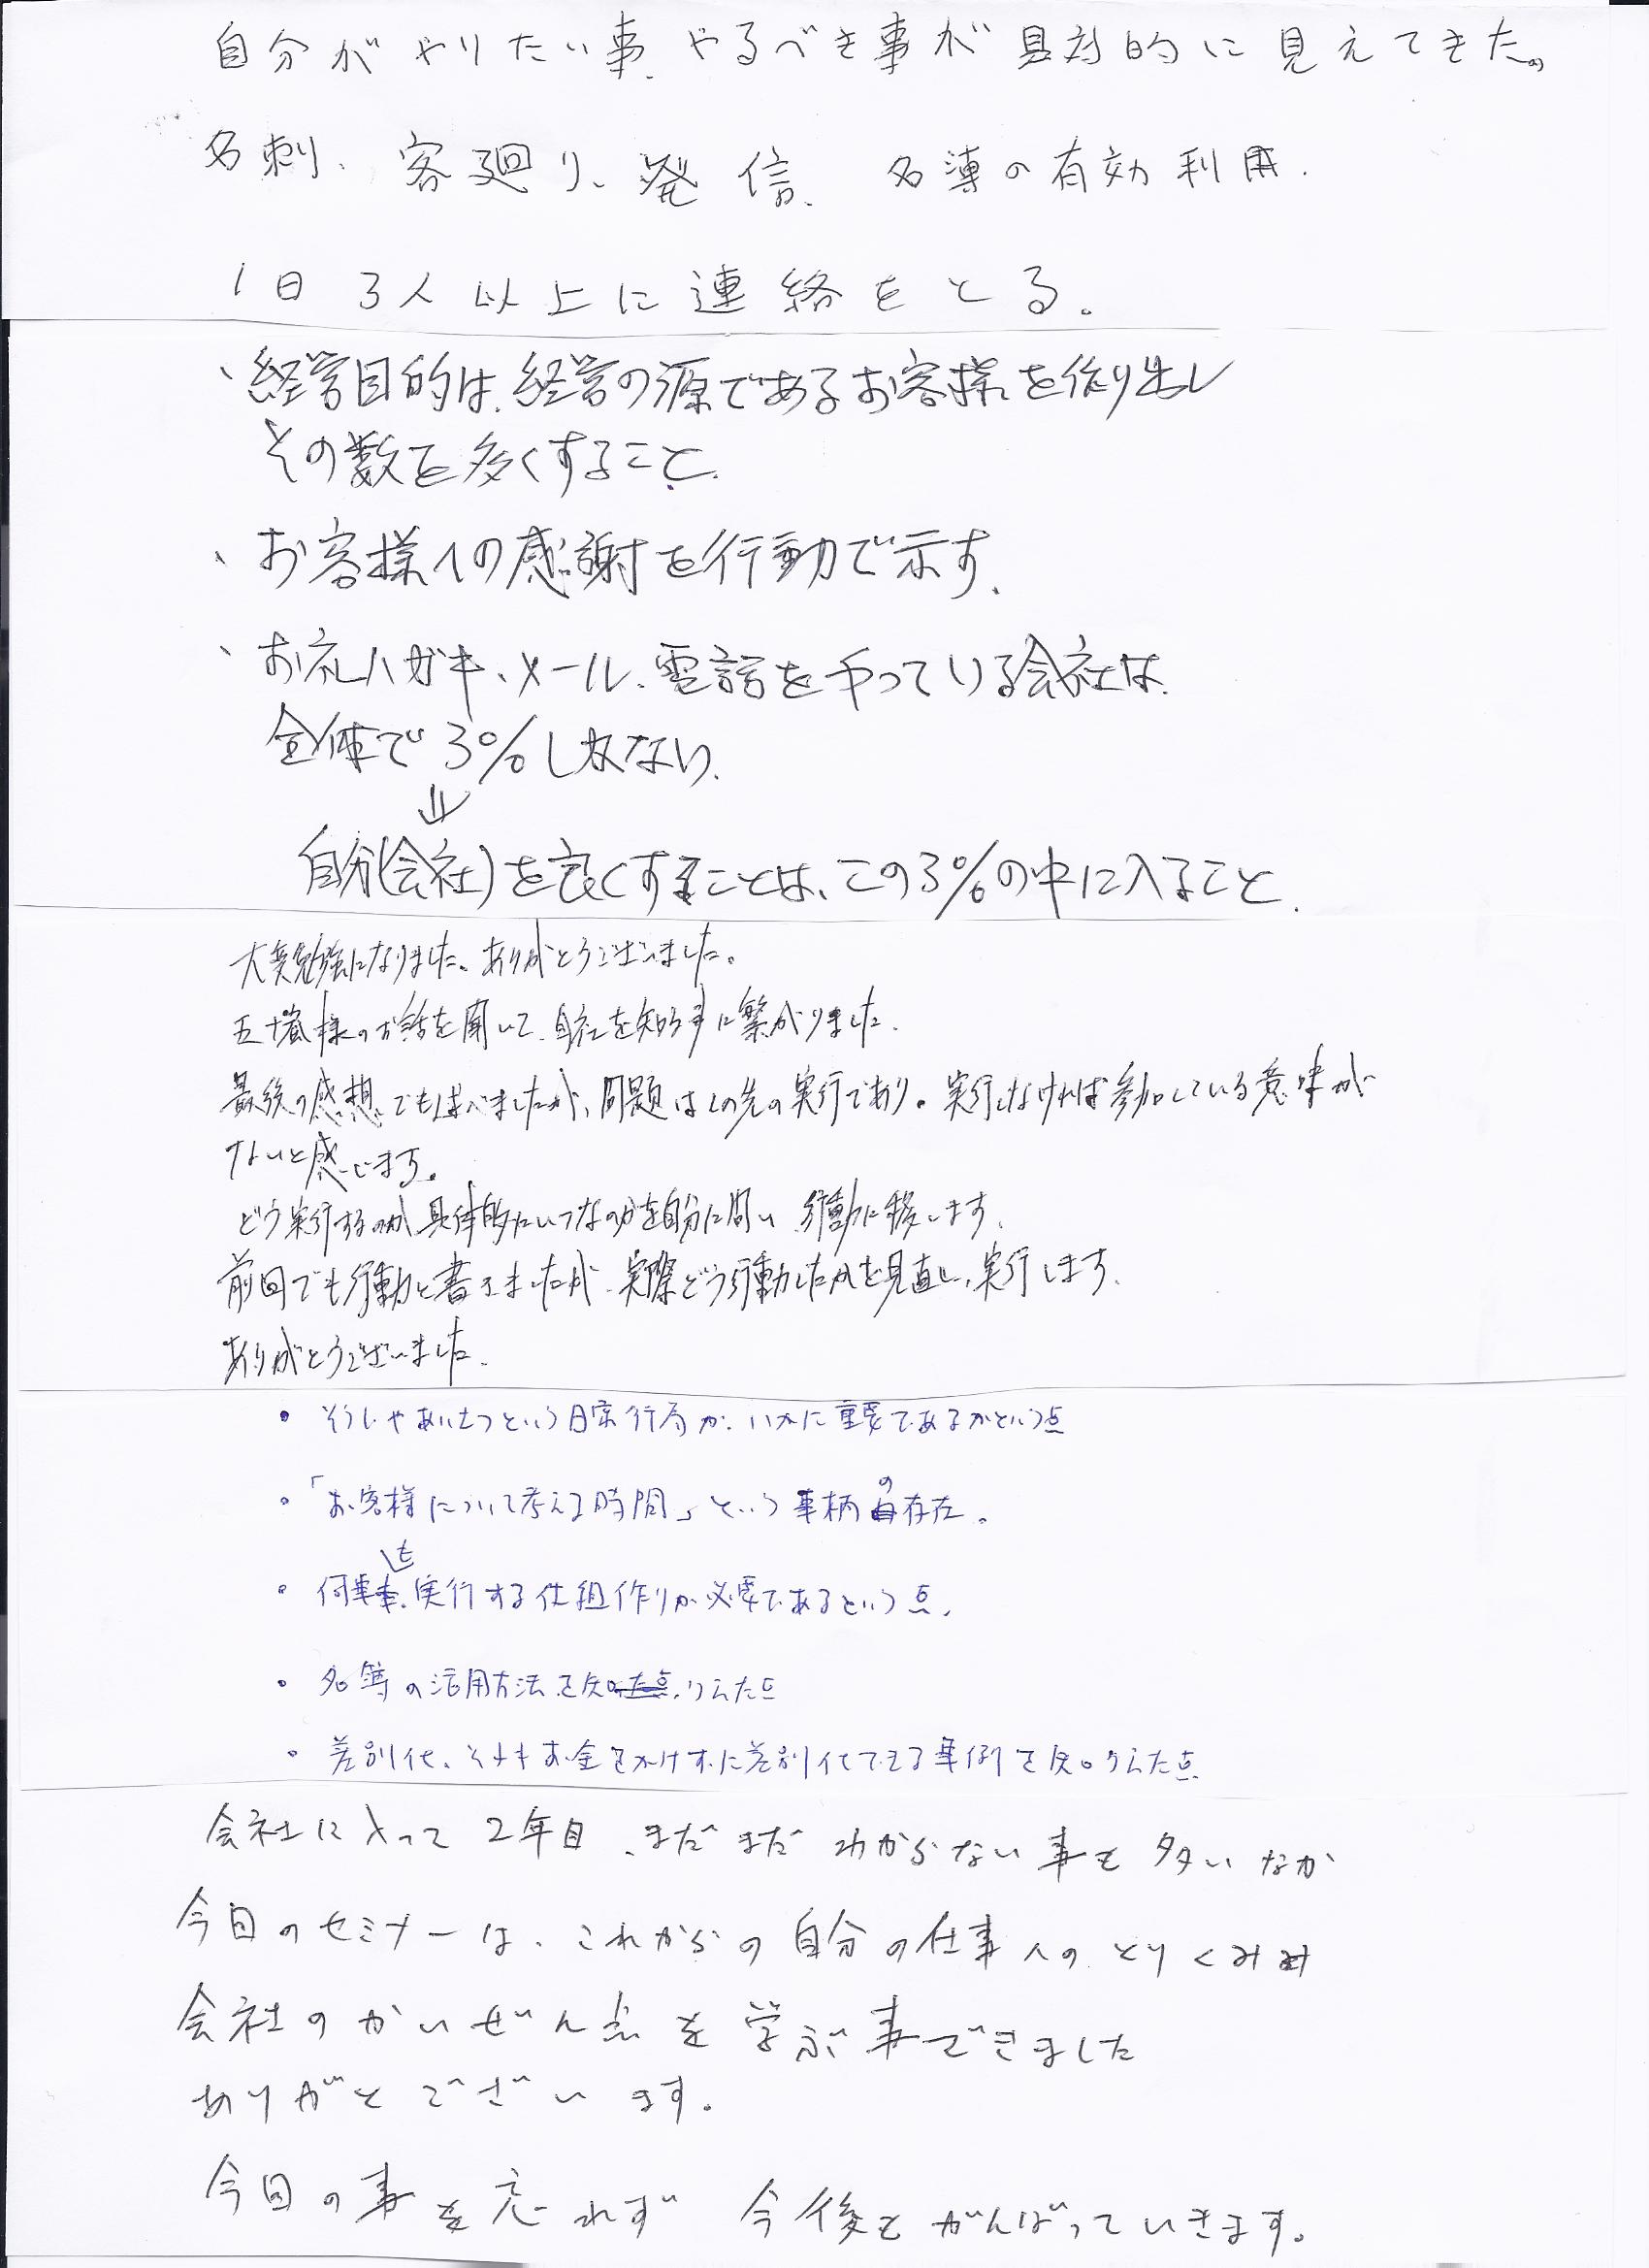 自分がやりたい事、やるべき事が具対的に見えてきた。
名刺、客廻り、発信、名簿の有効利用.
1日3人以上に連絡をとる。
、経営目的は、経営の源であるお客様を作り出し
その数を多くすること、
、お客様への感謝を行動で示す、
、お礼ハガキ、メール、電話をやっている会社は、
全体で3%しかない、
⇓
自分(会社)を良くすることは、この3%の中に入ること、
大変勉強になりました。ありがとうございました。
五十嵐様のお話を聞いて、自社を知る事に繋がりました、
最後の感想でも述べましたが、問題はこの先の実行であり。実行しなければ参加している意味が
ないと感じます。
どう実行するのか、具体的にいつなのかを自分に問い、行動に移します、
前回でも行動と書きましたが、実際どう行動したかを見直し、実行します、
ありがとうございました、
・そうじやあいさつという日常行為が、いかに重要であるかという点
・「お客様について考える時間」という事柄の存在。
・何事も実行する仕組作りが必要であるという点、
・名簿の活用方法を知りえた点
・差別化、それもお金をかけずに差別化できる事例を知りえた点
会社に入って2年目、まだまだわからない事も多いなか
今回のセミナーは、これからの自分の仕事へのとりくみ
会社のかいぜん点を学ぶ事できました
ありがとでございます。
今回の事を忘れず今後もがんばっていきます。